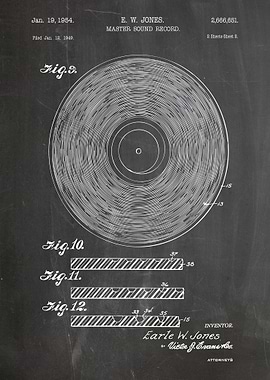 Jan. 19, 1954.
E. W. JONES.
2,666,651.
MASTER SOUND RECORD.
Filed Jan. 12, 1949.
2 Sheets-Sheet 2.
Fig. 9.
15
13
Fig. 10.
37
38
Fig. 11.
36
Fig. 12.
33
34
35
15
INVENTOR.
Earle W. Jones
BY Victor J. Evans & Co.
ATTORNEYS